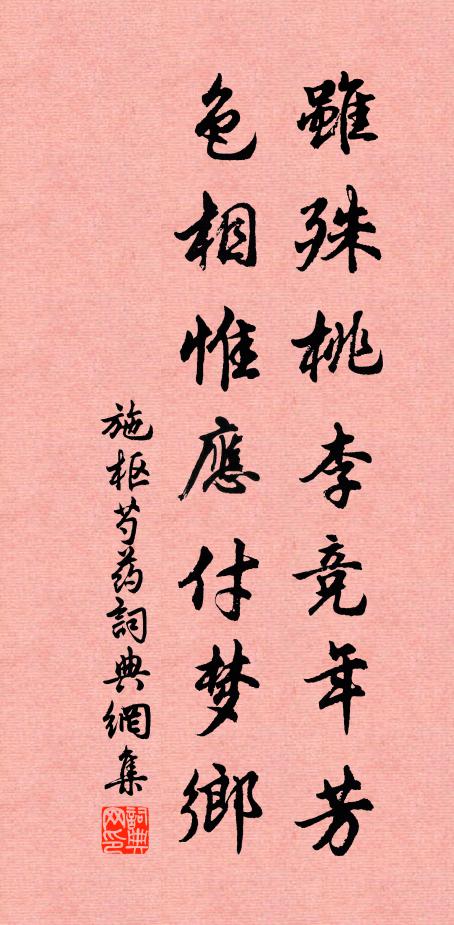 雖殊桃李竞年芳
色相惟應付梦鄉
施枢芍药詞典網集
詞典网印